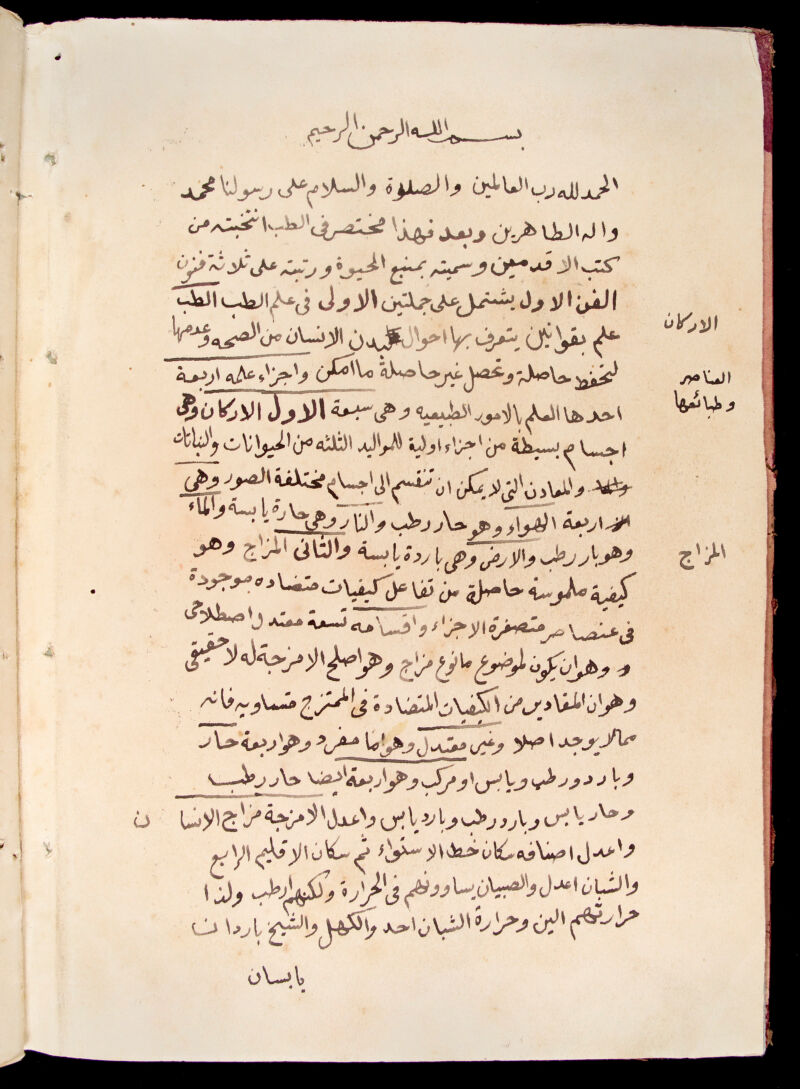 بسم الله الرحمن الرحيم
الحمد لله رب العالمين والصلوة والسلام على رسولنا محمد
واله الطاهرين وبعد فهذا مختصر في الطب انتخبته من
كتب الاقدمين وسميته بمنبع الحيوة ورتبته على ثلاثة فنون
الفن الاول يشتمل على جملتين الاولى في علم الطب الطب
علم بقوانين يتعرف بها احوال بدن الانسان من الصحه وعدمها
لتحفظ حاصلة وتحصل غير حاصلة ما امكن واجزاء علمه اربعة
احدها العلم بالامور الطبيعيه وهى سبعة الاول الاركان وهى
اجسام بسيطة من اجزاء اولية للمواليد الثلثه من الحيوانات والنباتات
والمعادن التى لا يمكن ان تنقسم الى اجسام مختلفة الصور وهى
اربعة الهواء وهو حار رطب والنار وهى حارة يابسة والماء
وهو بار رطب والارض وهى باردة يابسة والثانى المزاج وهو
كيفية ملموسة حاصلة من تفاعل كيفيات متضاده موجودة
في عناصر متصغرة الاجزاء واقسامه تسعة معتدل اصطلاحى
و وهو ان يكون لموضوع ما نوع مزاج وهو اصلح الامزجة له لا حقيقى
وهو ان المقادير من الكيفيات المتضادة في الممتزج متساويه فانه
مما لا يوجد اصلا وغير معتدل وهو اما مفرد وهو اربعة حار
وبارد ورطب ويابس او مركب وهو اربعة ايضا حار رطب
وحار يابس وبارد رطب وبارد يابس واعدل الامزجة مزاج الانسا ن
واعدل اصنافه سكان خط الاستواء ثم سكان الاقليم الرابع
والشبان اعدل والصبيان يساوونهم في الحرارة ولكنهم ارطب ولذا
حرارتهم الين وحرارة الشبان احد والكهل والشيخ باردا نا
يابسان
الاركان
العناصر
وطبائعها
المزاج